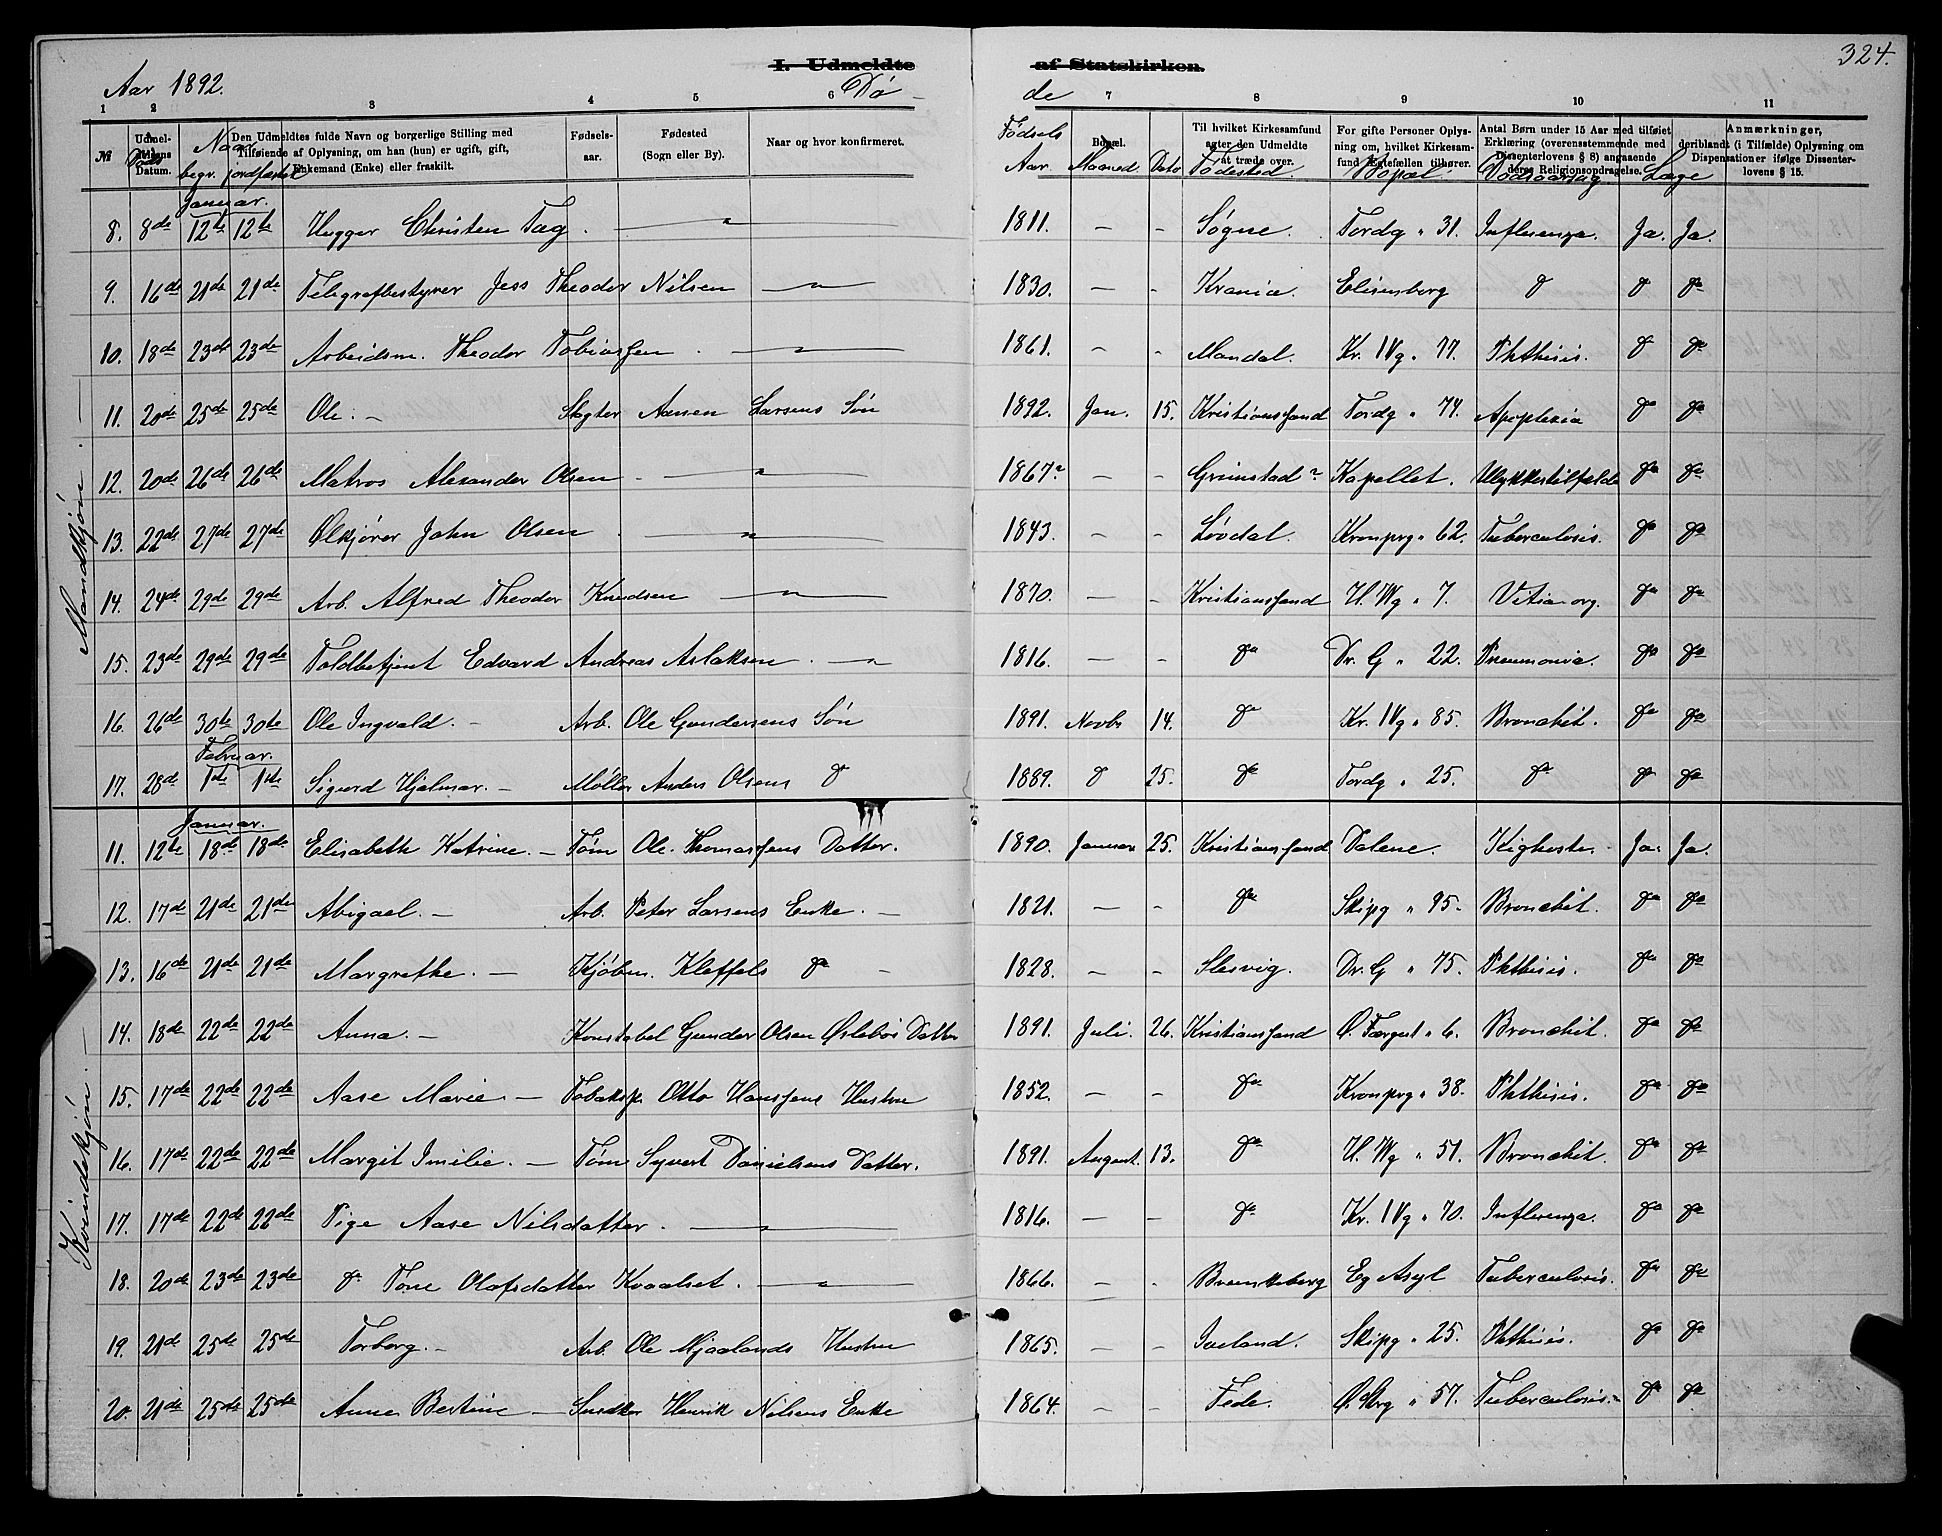 324.
Aar 1892.
I. Udmeldte af Statskirken.
Dø - de
1 2 3 4 5 6 7 8 9 10 11
№
Udmel-
delsens
Datum.
Døds
Naar
begr. jordfæstet
Den Udmeldtes fulde Navn og borgerlige Stilling med
Tilføiende af Oplysning, om han (hun) er ugift, gift,
Enkemand (Enke) eller fraskilt.
Fødsels-
aar.
Fødested
(Sogn eller By).
Naar og hvor konfirmeret.
Fødsels
Aar. Maaned Dato
Bopæl.
Til hvilket Kirkesamfund
agter den Udmeldte
at træde over.
Fødested.
For gifte Personer Oplys-
ning om, hvilket Kirkesam-
fund Ægtefællen tilhører.
Bopæl.
Antal Børn under 15 Aar med tilføiet
Erklæring (overensstemmende med
Dissenterlovens § 8) angaaende
deres Religionsopdragelse.
Dødsaarsag
Læge
Anmærkninger,
deriblandt (i Tilfælde) Oplysning om
Dispensationer ifølge Dissenter-
lovens § 15.
Mandkjøn.
Januar.
8. 8de 12te 12te Hugger Christen Tag. — " — 1811. — - Søgne. Tordg " 31. Influenza. Ja. Ja.
9. 16de 21de 21de Telegrafbestyrer Jess Theodor Nilsen — " — 1830. — - Krania. Elisenberg do do do
10. 18de 23de 23de Arbeidsm. Theodor Tobiassen. — " — 1861. - - Mandal. Kr. IVg " 77. Phthisis. do do
11. 20de 25de 25de Ole. - Slagter Aanen Larsens Søn 1892. Jan. 15. Kristianssand Tordg " 74. Apoplexia do do
12. 20de 26de 26de Matros Alexander Olsen. — " — 1867? - - Grimstad? Kapellet. Ulykkestilfælde do do
13. 22de 27de 27de Ølkjører John Olsen. — " — 1843. - - Løvdal. Kronprg " 62. Tuberculosis. do do
14. 24de 29de 29de Arb. Alfred Theodor Knudsen — " — 1870. — - Kristianssand H. Wg " 7. Vitia org. do do
15. 23de 29de 29de Toldbetjent Edvard Andreas Aslaksen. — " 1816. — - do Dr. G " 22. Pneumonia. do do
16. 26de 30te 30te Ole Ingvald. - Arb. Ole Gundersens Søn 1891. Novbr 14. do Kr. IVg " 85. Bronchit. do do
Februar.
17. 28de 1ste 1ste Sigurd Hjalmar. - Møller Anders Olsens do 1889. do 25. do Tordg " 25. do do do
Kvindekjøn.
Januar.
11. 12te 18de 18de Elisabeth Katrine. - Tøm Ole Thomassens Datter. 1890. Januar 25. Kristianssand Dalene. Kighoste. Ja. Ja.
12. 17de 21de 21de Abigael. - Arb. Peter Larsens Enke. - 1821. — - do Skipg " 95. Bronchit. do do
13. 16de 21de 21de Margrethe. - Kjøbm. Kleffels do - 1828. - - Slesvig. Dr. G " 75. Phthisis. do do
14. 18de 22de 22de Anna. - Konstabel Gunder Olsen Ørlebøs Datter 1891. Juli. 26. Kristianssand Ø. Færgest " 6. Bronchit. do do
15. 17de 22de 22de Aase Marie - Tobaksp. Otto Hanssens Hustru 1852. - - do Kronprg " 38. Phthisis. do do
16. 17de 22de 22de Margit Imilie. - Tøm Syvert Danielsens Datter. 1891. August. 13. do H. Wg " 51. Bronchit. do do
17. 17de 22de 22de Pige Aase Nilsdatter. — " — 1816. — - do Kr. IVg " 70. Influenza. do do
18. 20de 23de 23de do Tone Olafsdatter Kvaalset. — " — 1866. - - Brunkeberg Eg Asyl Tuberculosis. do do
19. 21de 25de 25de Torborg. - Arb. Ole Mjaalands Hustru 1865. - - Iveland. Skipg " 25. Phthisis. do do
20. 21de 25de 25de Anne Bertine - Snedker Henrik Nilsens Enke 1864. - - Fede. Tuberculosis. do do